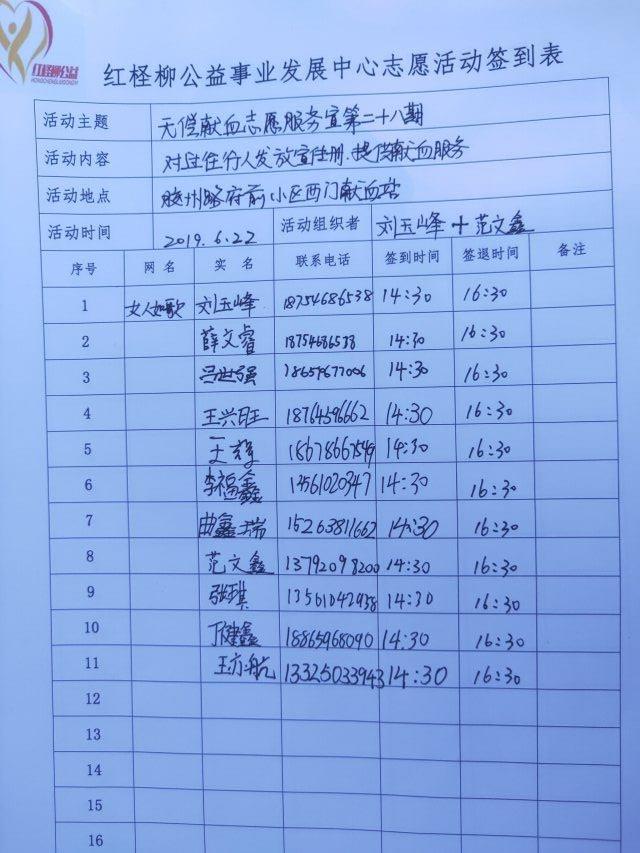 红柽柳公益
HONGCHENGLIUGONGYI
红柽柳公益事业发展中心志愿活动签到表
活动主题 无偿献血志愿服务宣第二十八期
活动内容 对过往行人发放宣传册.提供献血服务
活动地点 胶州路府前小区西门献血站
活动时间 2019.6.22 活动组织者 刘玉峰 + 范文鑫
序号 网名 实名 联系电话 签到时间 签退时间 备注
1 女人如歌 刘玉峰 18754686538 14:30 16:30
2 薛文睿 18754686538 14:30 16:30
3 吕世强 14:30 16:30
4 王兴旺 18764596662 14:30 16:30
5 王 18678667549 14:30 16:30
6 李福鑫 13561020347 14:30 16:30
7 曲鑫瑞 15263811662 14:30 16:30
8 范文鑫 13792098200 14:30 16:30
9 张琪 13561042938 14:30 16:30
10 丁健鑫 18865968090 14:30 16:30
11 王亦航 13325033943 14:30 16:30
12
13
14
15
16